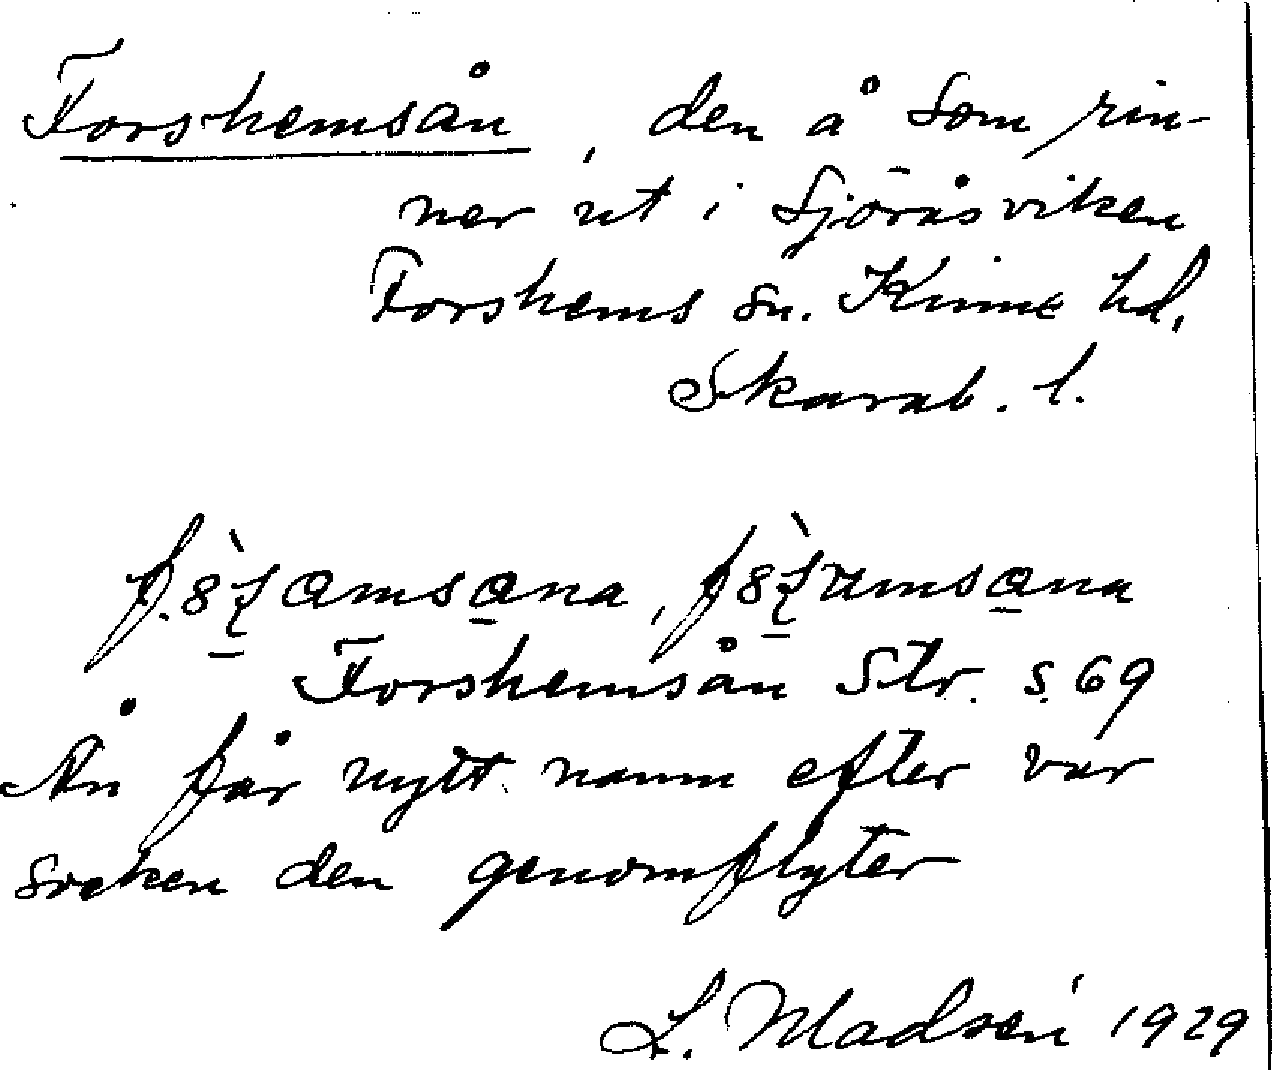 Forshemsån, den å som rin-
ner ut i Sjöråsviken
Forshems sn. Kinne hd,
Skarab. l.
Forshemsån Str. s. 69
Ån får nytt namn efter var
socken den genomflyter
L. Madsén 1929